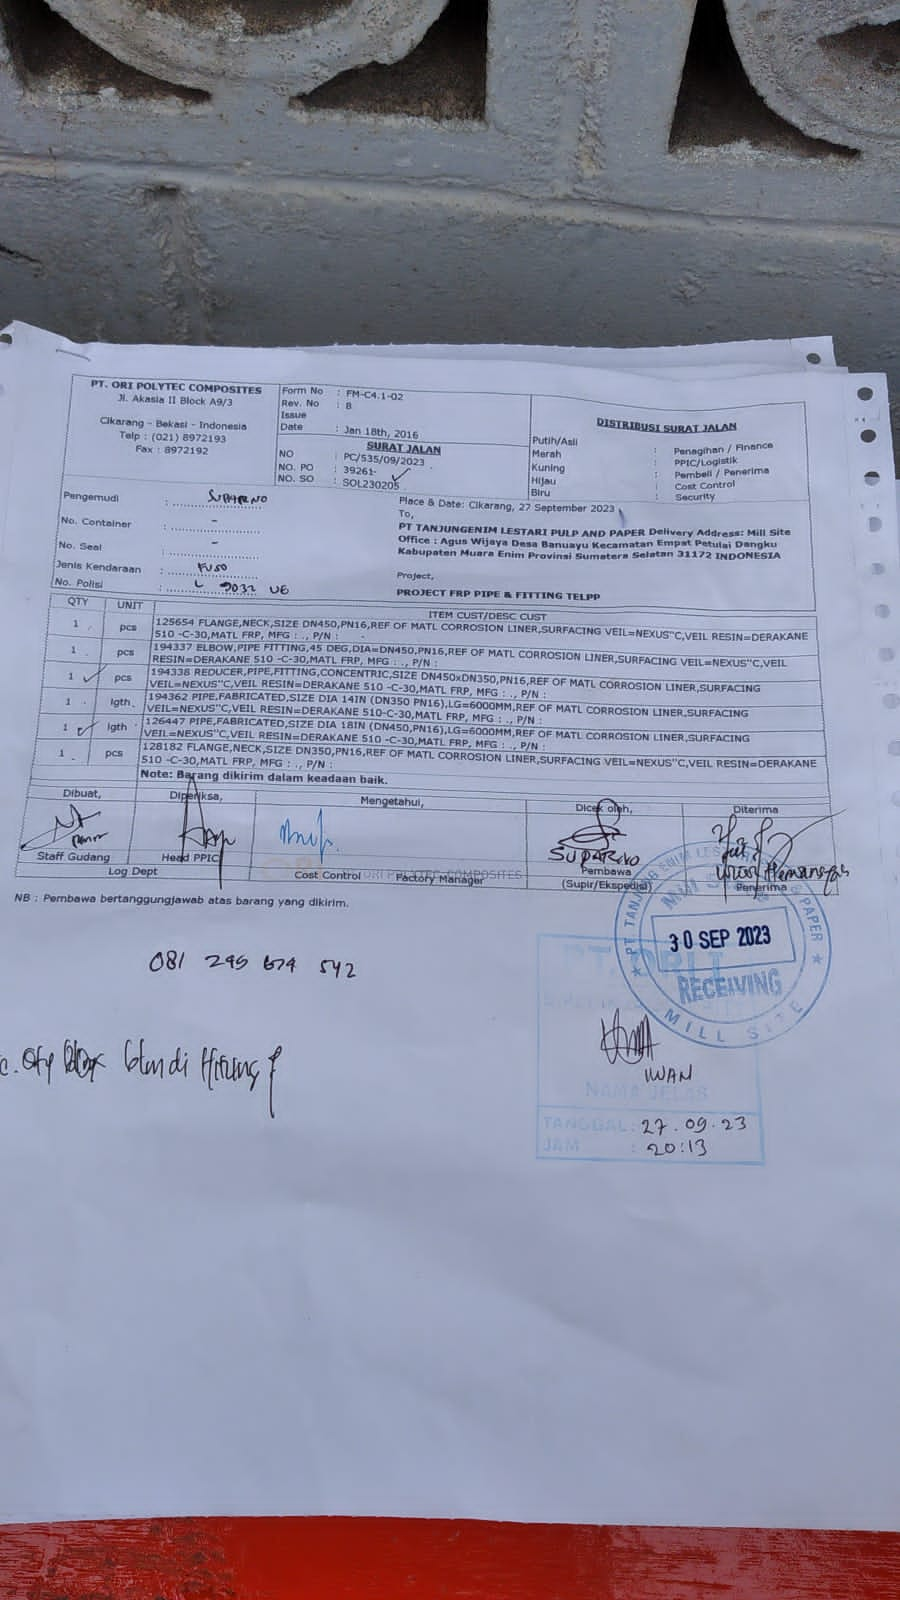 PT. ORI POLYTEC COMPOSITES
Jl. Akasia II Block A9/3
Cikarang - Bekasi - Indonesia
Telp : (021) 8972193
Fax : 8972192
Form No : FM-C4.1-02
Rev. No : 8
Issue
Date : Jan 18th, 2016
SURAT JALAN
NO : PC/535/09/2023
NO. PO : 39261-
NO. SO : SOL230205
DISTRIBUSI SURAT JALAN
Putih/Asli : Penagihan / Finance
Merah : PPIC/Logistik
Kuning : Pembeli / Penerima
Hijau : Cost Control
Biru : Security
Pengemudi : SUPARNO
No. Container : -
No. Seal : -
Jenis Kendaraan : FUSO
No. Polisi : L 9032 UE
Place & Date: Cikarang, 27 September 2023
To,
PT TANJUNGENIM LESTARI PULP AND PAPER Delivery Address: Mill Site
Office : Agus Wijaya Desa Banuayu Kecamatan Empat Petulai Dangku
Kabupaten Muara Enim Provinsi Sumatera Selatan 31172 INDONESIA
Project,
PROJECT FRP PIPE & FITTING TELPP
QTY UNIT ITEM CUST/DESC CUST
1 pcs 125654 FLANGE,NECK,SIZE DN450,PN16,REF OF MATL CORROSION LINER,SURFACING VEIL=NEXUS"C,VEIL RESIN=DERAKANE
510 -C-30,MATL FRP, MFG : ., P/N : -
1 pcs 194337 ELBOW,PIPE FITTING,45 DEG,DIA=DN450,PN16,REF OF MATL CORROSION LINER,SURFACING VEIL=NEXUS"C,VEIL
RESIN=DERAKANE 510 -C-30,MATL FRP, MFG : ., P/N :
1 pcs 194338 REDUCER,PIPE,FITTING,CONCENTRIC,SIZE DN450xDN350,PN16,REF OF MATL CORROSION LINER,SURFACING
VEIL=NEXUS"C,VEIL RESIN=DERAKANE 510 -C-30,MATL FRP, MFG : ., P/N :
1 lgth 194362 PIPE,FABRICATED,SIZE DIA 14IN (DN350 PN16),LG=6000MM,REF OF MATL CORROSION LINER,SURFACING
VEIL=NEXUS"C,VEIL RESIN=DERAKANE 510-C-30,MATL FRP, MFG : ., P/N :
1 lgth 126447 PIPE,FABRICATED,SIZE DIA 18IN (DN450,PN16),LG=6000MM,REF OF MATL CORROSION LINER,SURFACING
VEIL=NEXUS"C,VEIL RESIN=DERAKANE 510 -C-30,MATL FRP, MFG : ., P/N :
1 pcs 128182 FLANGE,NECK,SIZE DN350,PN16,REF OF MATL CORROSION LINER,SURFACING VEIL=NEXUS"C,VEIL RESIN=DERAKANE
510 -C-30,MATL FRP, MFG : ., P/N :
Note: Barang dikirim dalam keadaan baik.
Dibuat, Diperiksa, Mengetahui, Dicek oleh, Diterima
SUPARNO
Staff Gudang Head PPIC Pembawa Penerima
Log Dept Cost Control Factory Manager (Supir/Ekspedisi)
ORI POLYTEC COMPOSITES
NB : Pembawa bertanggungjawab atas barang yang dikirim.
PT TANJUNG ENIM LESTARI PULP & PAPER
30 SEP 2023
RECEIVING
MILL SITE
PT. ORI
IWAN
NAMA JELAS
TANGGAL : 27.09.23
JAM : 20:13